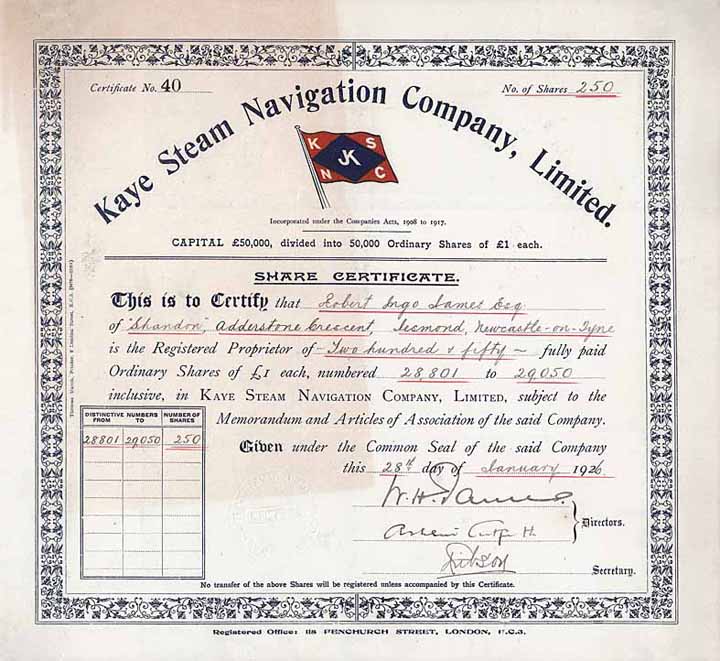 Certificate No. 40
No. of Shares 250
Kaye Steam Navigation Company, Limited.
K S
JK
N C
Incorporated under the Companies Acts, 1908 to 1917.
CAPITAL £50,000, divided into 50,000 Ordinary Shares of £1 each.
SHARE CERTIFICATE.
This is to Certify that Robert Ingo James Esq
of "Shandon", Adderstone Crescent, Jesmond, Newcastle-on-Tyne
is the Registered Proprietor of Two hundred & fifty ~ fully paid
Ordinary Shares of £1 each, numbered 28801 to 29050
inclusive, in KAYE STEAM NAVIGATION COMPANY, LIMITED, subject to the
Memorandum and Articles of Association of the said Company.
Given under the Common Seal of the said Company
this 28th day of January 1926
DISTINCTIVE NUMBERS NUMBER OF
FROM TO SHARES
28801 29050 250
Directors.
Secretary.
No transfer of the above Shares will be registered unless accompanied by this Certificate.
Registered Office: 118 FENCHURCH STREET, LONDON, E.C.3.